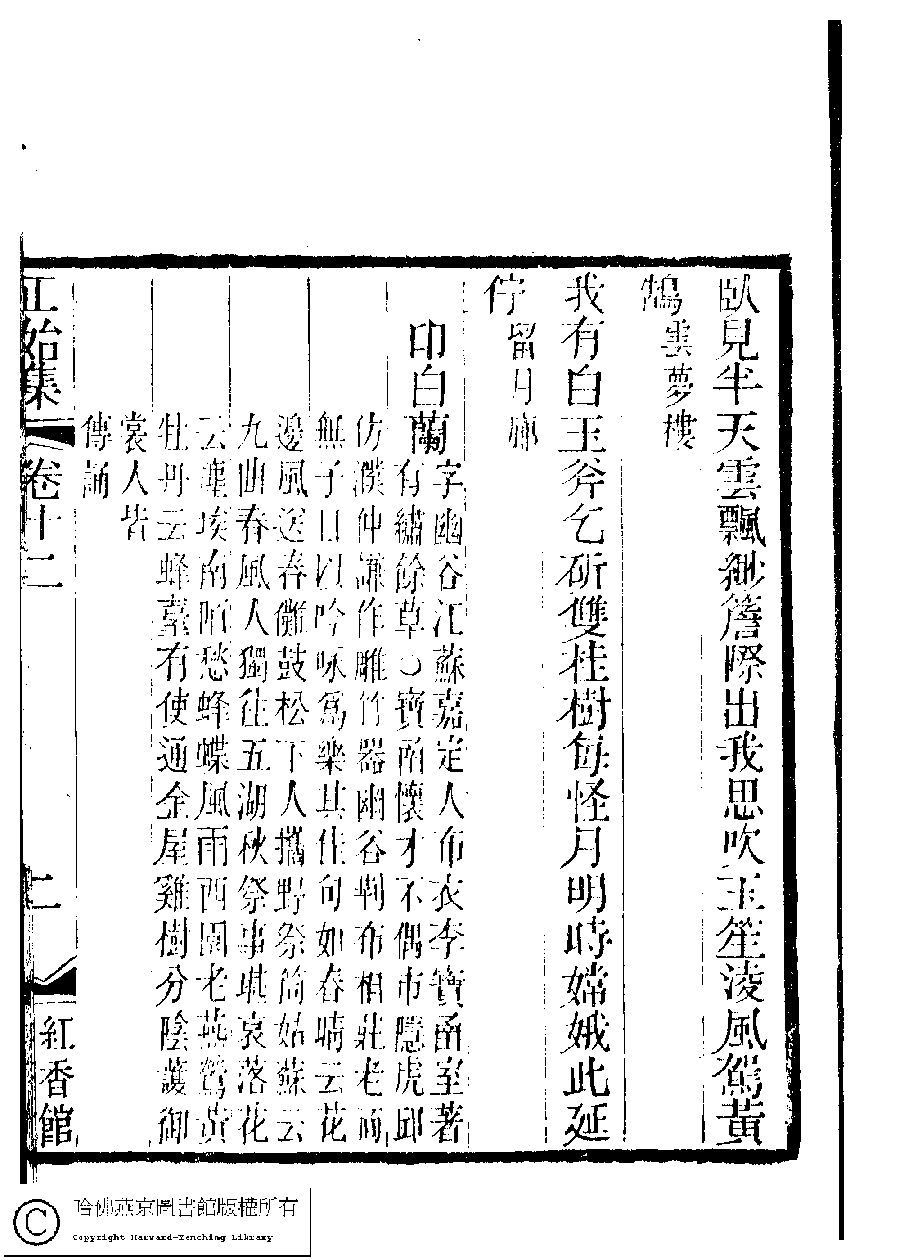 臥見半天雲飄緲簷際出我思吹玉笙淩風駕黃
鵠雲夢樓
我有白玉斧乞斫雙桂樹每怪月明時嫦娥此延
佇留月廊
印白蘭
字幽谷江蘇嘉定人布衣李寶函室著
有繡餘草○寶函懷才不偶市隱虎邱
仿濮仲謙作雕竹器幽谷荆布相莊老而
無子日以吟咏爲樂其佳句如春晴云花
邊風送春儺鼓松下人攜野祭筒姑蘇云
九曲春風人獨往五湖秋祭事堪哀落花
云塵埃南陌愁蜂蝶風雨西園老燕鶯黃
牡丹云蜂臺有使通金屋雞樹分陰護御
裳人皆
傳誦
正始集
卷十二
二
紅香館
哈佛燕京圖書館版權所有
Copyright Harvard-Yenching Library